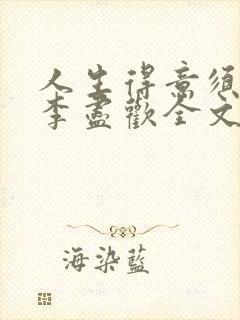 人生得意須
李盡歡全文
海染藍